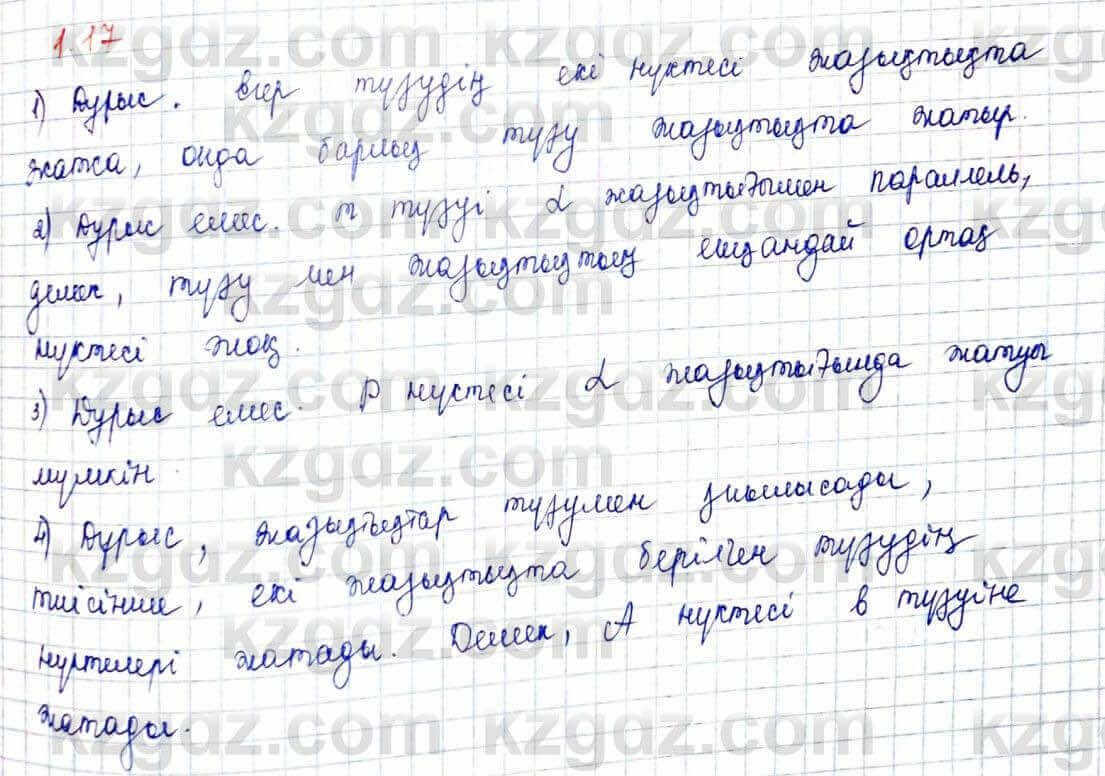 1.17
1) Дұрыс. Егер түзудің екі нүктесі жазықтықта
жатса, онда барлық түзу жазықтықта жатыр.
2) Дұрыс емес. m түзуі α жазықтығымен параллель,
демек, түзу мен жазықтықтың ешқандай ортақ
нүктесі жоқ.
3) Дұрыс емес. P нүктесі α жазықтығында жатуы
мүмкін.
4) Дұрыс, жазықтықтар түзумен қиылысады,
тиісінше, екі жазықтықта берілген түзудің
нүктелері жатады. Демек, A нүктесі b түзуіне
жатады.
kzgdz.com